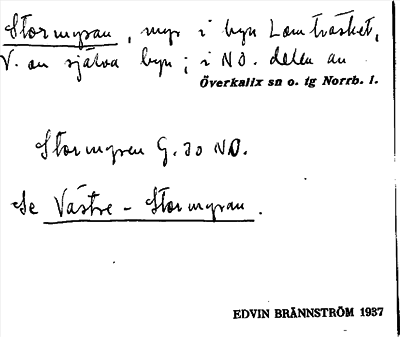 Stormyran, myr i byn Lomträsket,
V. om själva byn; i NO. delen av
Överkalix sn o. tg Norrb. l.
Stormyren G. 30 NO.
Se Västre - Stormyran.
EDVIN BRÄNNSTRÖM 1937